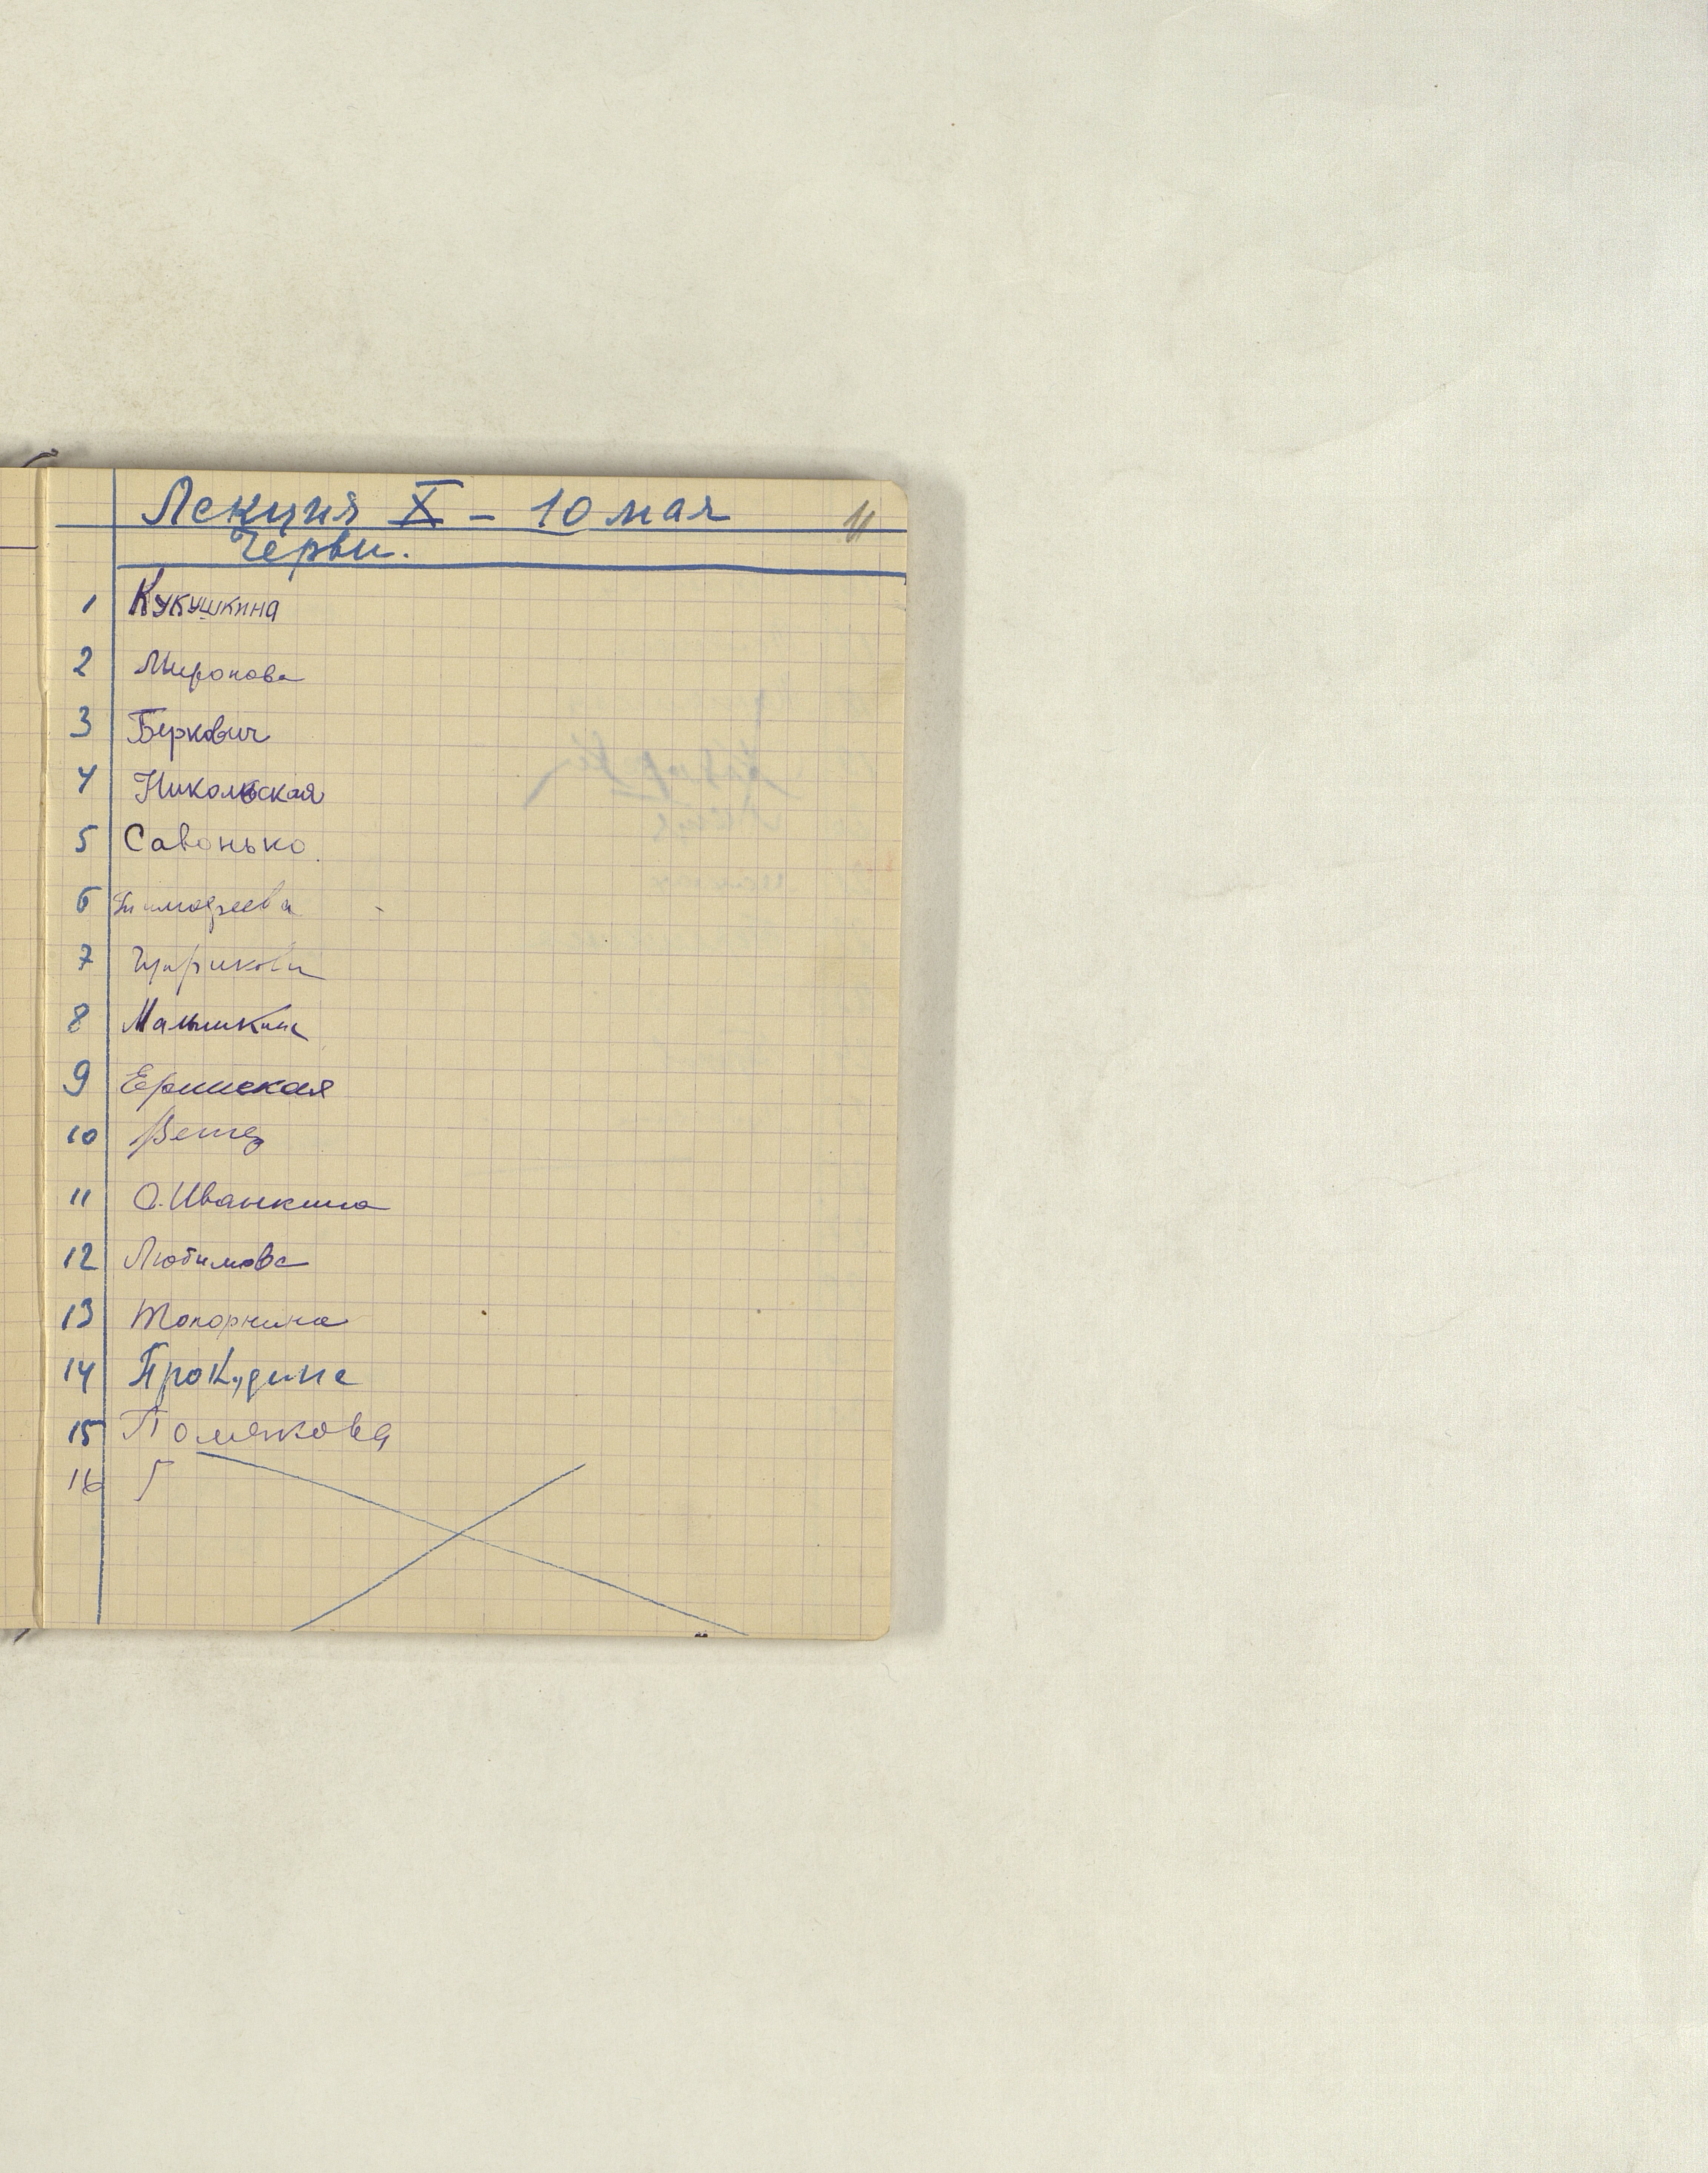 Лекция X - 10 мая
11
Черви.
1 Кукушкина
2 Миронова
3 Беркович
4 Никольская
5 Савонько.
6 Тимофеева
7 Цурикова
8 Малышкина
9 Ершиская
10
11 О. Иванкина
12 Любимова
13 Топорнина
14 Прокудина
15 Полякова
16 Г